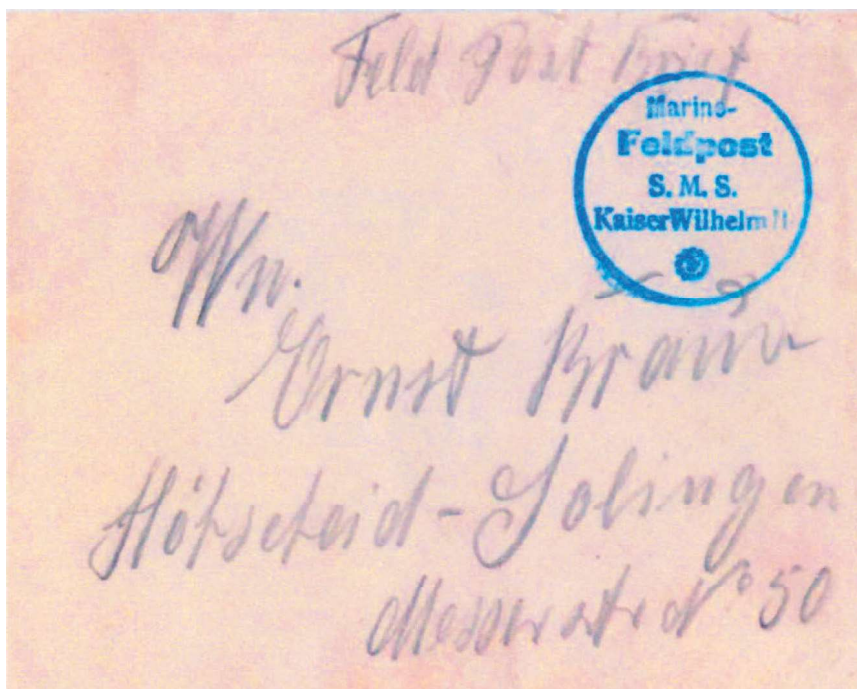 Feld Post Brief
Marine-
Feldpost
S. M. S.
Kaiser Wilhelm II
Wn.
Ernst Braun
Höhscheid-Solingen
Messerstr N° 50